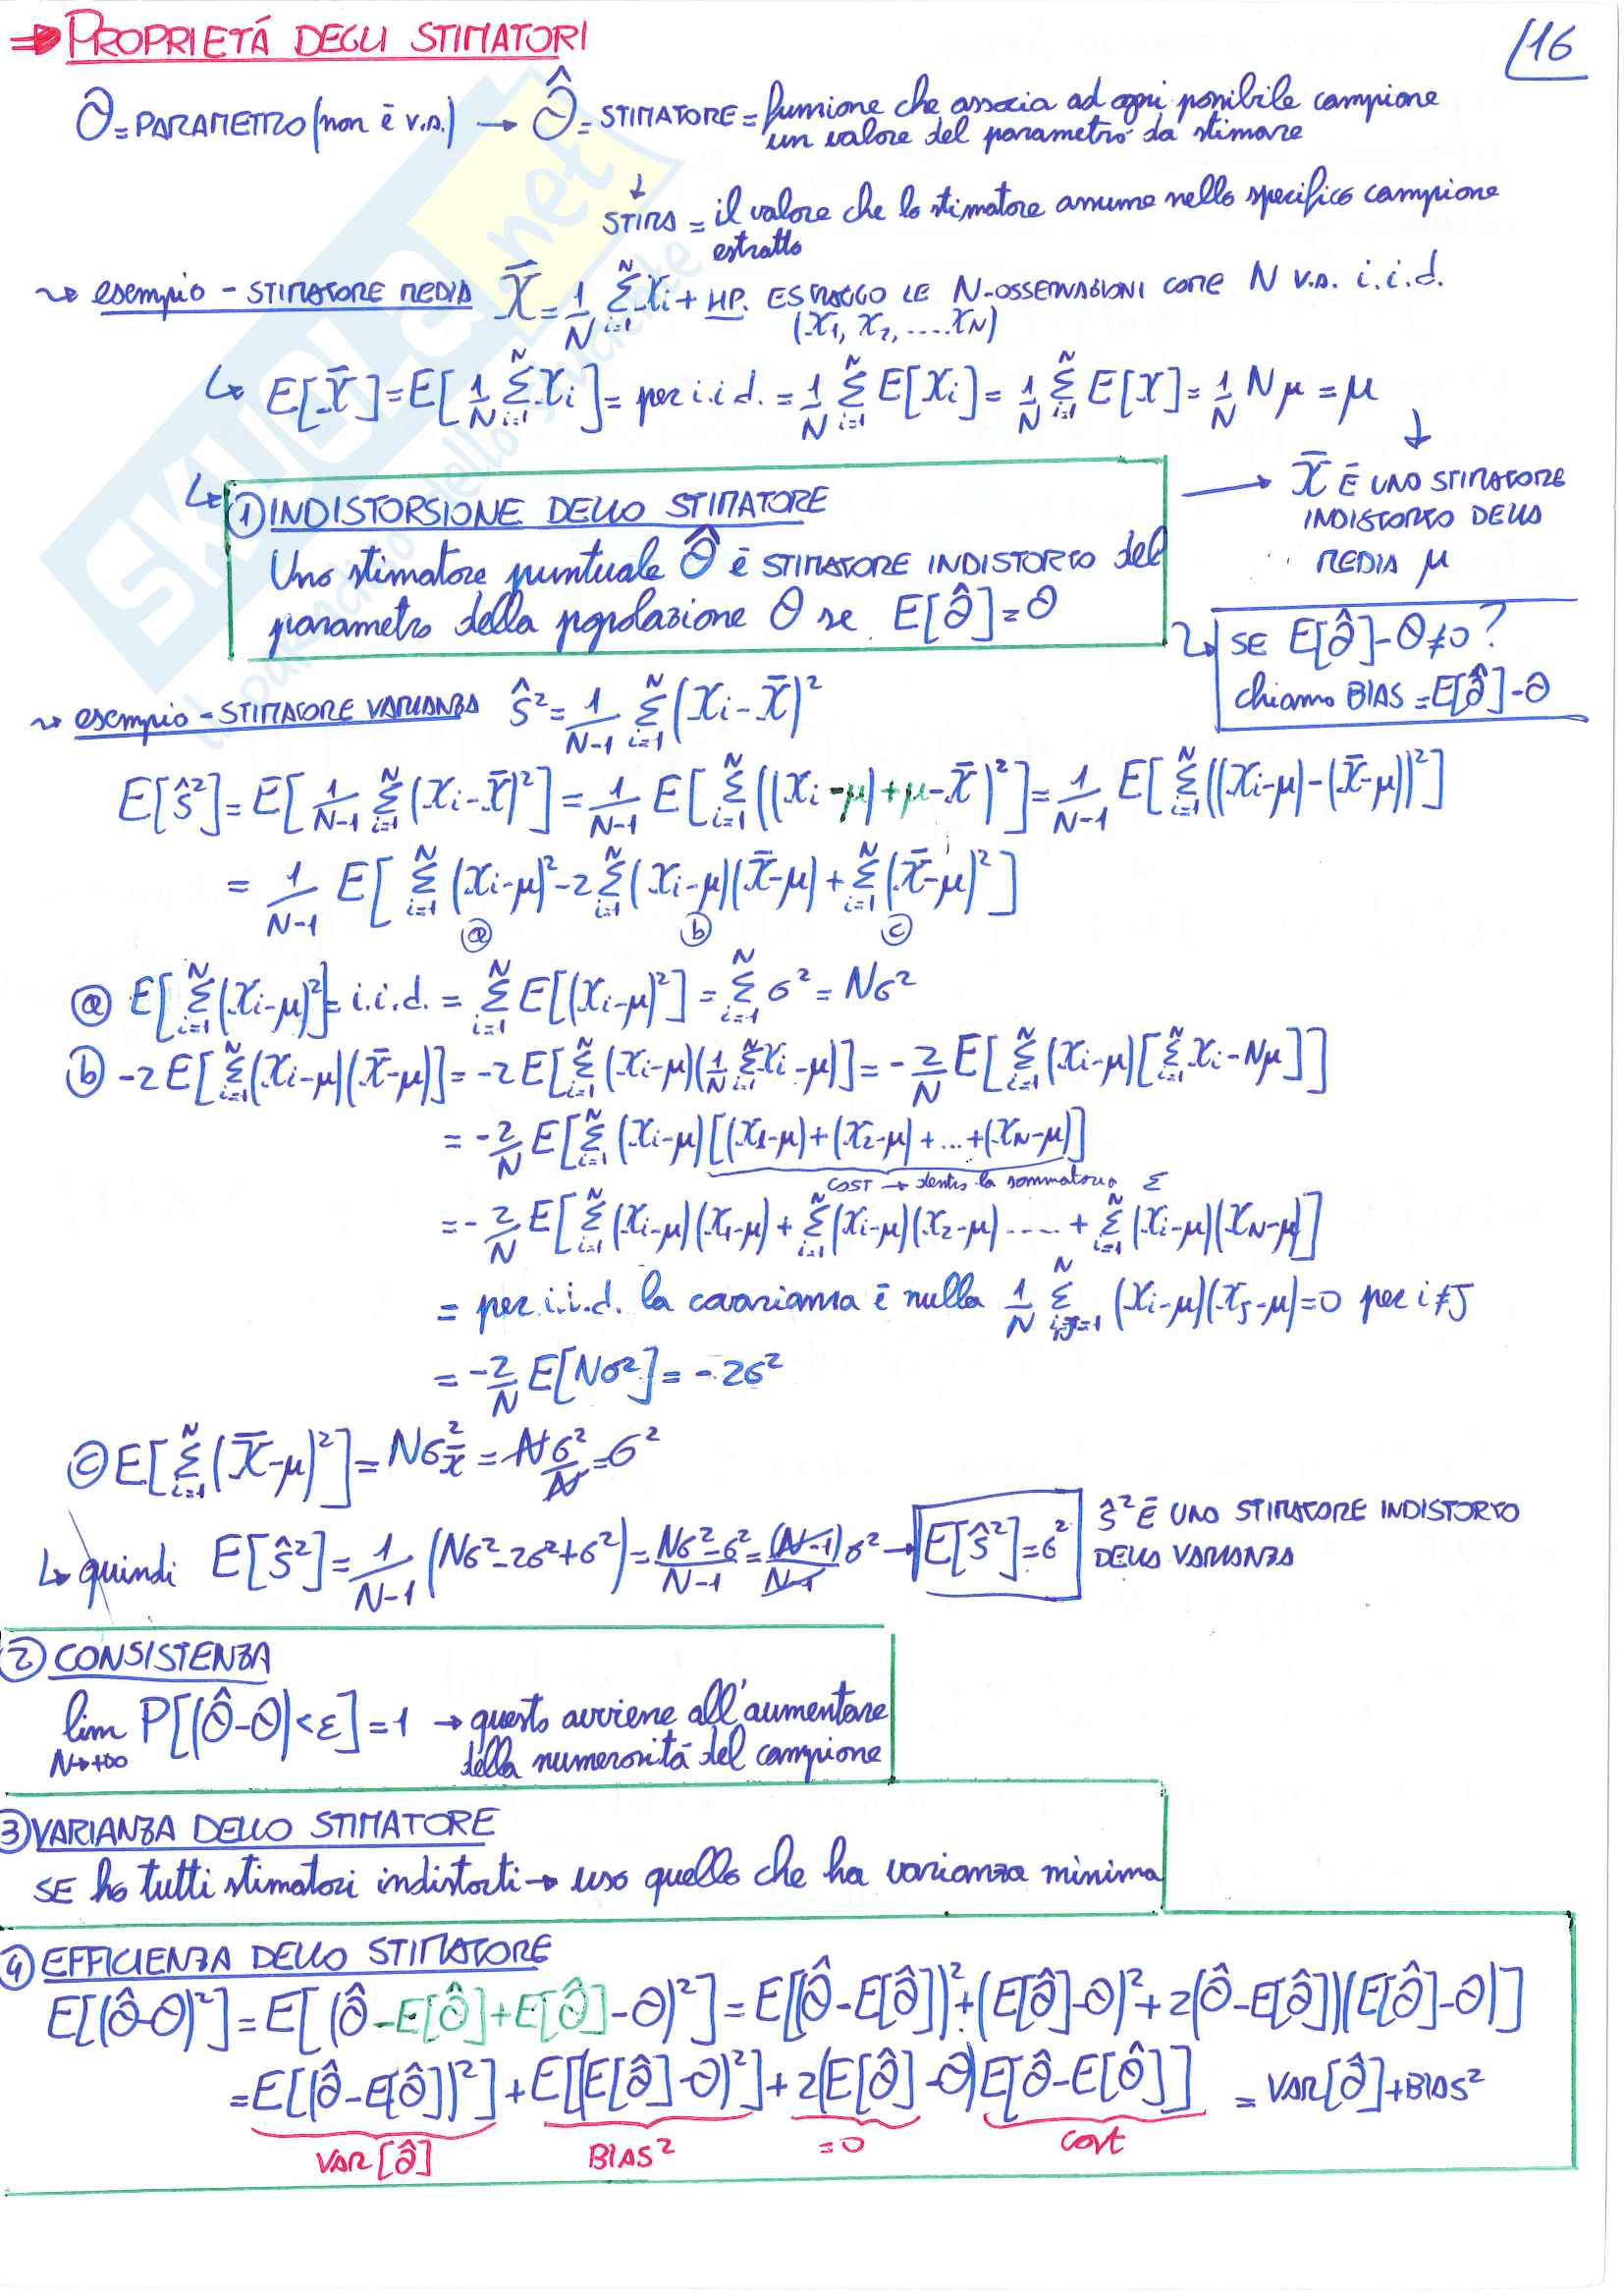 ⇒ PROPRIETÁ DEGLI STIMATORI
16
Θ = PARAMETRO (non è v.a.) → Θ̂ = STIMATORE = funzione che associa ad ogni possibile campione
un valore del parametro da stimare
↓
STIMA = il valore che lo stimatore assume nello specifico campione
estratto
esempio - STIMATORE MEDIA X̄ = 1/N Σ_{i=1}^{N} Xi + HP. ESTRAGGO LE N-OSSERVAZIONI COME N V.A. i.i.d.
(X1, X2, .... XN)
↳ E[X̄] = E[1/N Σ_{i=1}^{N} Xi] = per i.i.d. = 1/N Σ_{i=1}^{N} E[Xi] = 1/N Σ_{i=1}^{N} E[X] = 1/N Nμ = μ
↓
① INDISTORSIONE DELLO STIMATORE
Uno stimatore puntuale Θ̂ è STIMATORE INDISTORTO del
parametro della popolazione Θ se E[Θ̂] = Θ
→ X̄ È UNO STIMATORE
INDISTORTO DELLA
MEDIA μ
SE E[Θ̂] - Θ ≠ 0 ?
chiamo BIAS = E[Θ̂] - Θ
esempio - STIMATORE VARIANZA Ŝ² = 1/N-1 Σ_{i=1}^{N} (Xi - X̄)²
E[Ŝ²] = E[1/N-1 Σ_{i=1}^{N} (Xi - X̄)²] = 1/N-1 E[Σ_{i=1}^{N} ((Xi - μ) + μ - X̄)²] = 1/N-1 E[Σ_{i=1}^{N} ((Xi - μ) - (X̄ - μ))²]
= 1/N-1 E[Σ_{i=1}^{N} (Xi - μ)² - 2 Σ_{i=1}^{N} (Xi - μ)(X̄ - μ) + Σ_{i=1}^{N} (X̄ - μ)²]
ⓐ ⓑ ⓒ
ⓐ E[Σ_{i=1}^{N} (Xi - μ)²] = i.i.d. = Σ_{i=1}^{N} E[(Xi - μ)²] = Σ_{i=1}^{N} σ² = Nσ²
ⓑ -2 E[Σ_{i=1}^{N} (Xi - μ)(X̄ - μ)] = -2 E[Σ_{i=1}^{N} (Xi - μ)(1/N Σ_{i=1}^{N} Xi - μ)] = -2/N E[Σ_{i=1}^{N} (Xi - μ)[Σ_{i=1}^{N} Xi - Nμ]]
= -2/N E[Σ_{i=1}^{N} (Xi - μ)[(X1 - μ) + (X2 - μ) + ... + (XN - μ)]
COST → dentro la sommatoria Σ
= -2/N E[Σ_{i=1}^{N} (Xi - μ)(X1 - μ) + Σ_{i=1}^{N} (Xi - μ)(X2 - μ) ..... + Σ_{i=1}^{N} (Xi - μ)(XN - μ)]
= per i.i.d. la covarianza è nulla 1/N Σ_{i,j=1}^{N} (Xi - μ)(Xj - μ) = 0 per i ≠ J
= -2/N E[Nσ²] = -2σ²
ⓒ E[Σ_{i=1}^{N} (X̄ - μ)²] = Nσ²_X̄ = Nσ²/N = σ²
↳ quindi E[Ŝ²] = 1/N-1 (Nσ² - 2σ² + σ²) = Nσ² - σ²/N-1 = (N-1)σ²/N-1 → E[Ŝ²] = σ² Ŝ² È UNO STIMATORE INDISTORTO
DELLA VARIANZA
② CONSISTENZA
lim_{N→+∞} P[(Θ̂ - Θ) < ε] = 1 → questo avviene all'aumentare
della numerosità del campione
③ VARIANZA DELLO STIMATORE
SE ho tutti stimatori indistorti → uso quello che ha varianza minima
④ EFFICIENZA DELLO STIMATORE
E[(Θ̂ - Θ)²] = E[(Θ̂ - E[Θ̂] + E[Θ̂] - Θ)²] = E[(Θ̂ - E[Θ̂])² + (E[Θ̂] - Θ)² + 2(Θ̂ - E[Θ̂])(E[Θ̂] - Θ)]
= E[(Θ̂ - E[Θ̂])²] + E[(E[Θ̂] - Θ)²] + 2(E[Θ̂] - Θ) E[Θ̂ - E[Θ̂]] = VAR[Θ̂] + BIAS²
VAR[Θ̂] BIAS² = 0 cost
SKUOLA.net
il paradiso dello studente